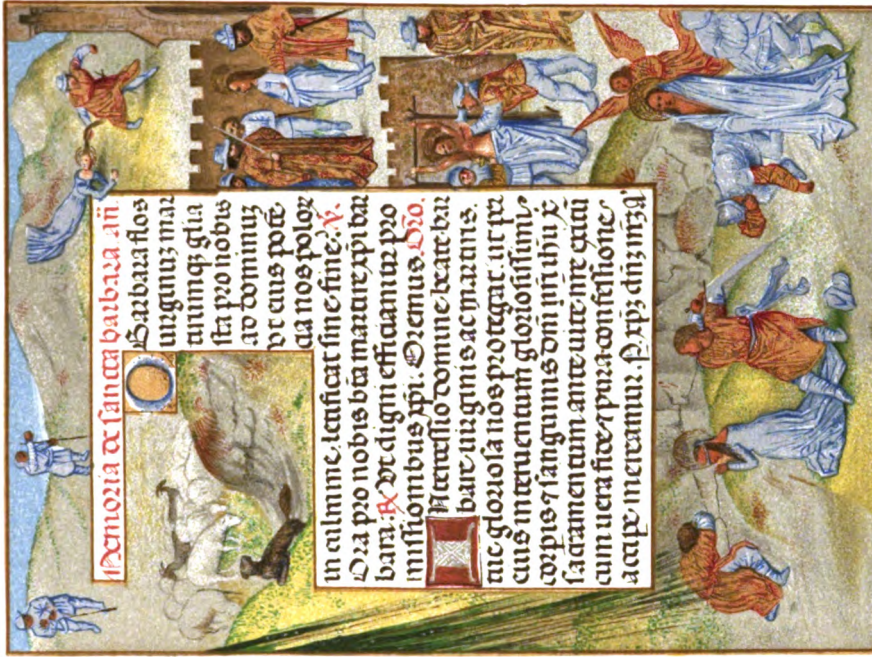 Memoria de sancta barbara. añ.
O Barbara flos
uirginuz mar
tirumqz glīa
sta pro nobis
ad dominuz
vt eius potē
cia nos poloꝝ
in culmine. letificat sine fine. ℣.
Ora pro nobis bt̄a martir xp̄i bar
bara. ℟ Vt digni efficiamur pro
missionibus xp̄i. Oremus. Orō.
Intercessio domine beate bar
bare uirginis ac martiris.
tue gloriosa nos protegat. ut pr̄
eius interuentum gloriosissimi
corp̄is ⁊ sanguinis dn̄i nr̄i ihū x̄
sacramentum ante uite nr̄e exitū
cum uera fide ⁊ pura confessione
accipe mereamur. P xp̄z dn̄z nr̄z